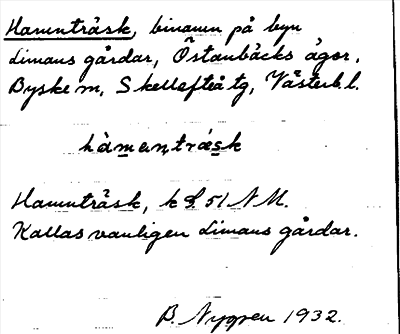 Hamnträsk, binamn på byn
Limans gårdar, Östanbäcks ägor,
Byske m, Skellefteå tg, Västerb. l.
hàmentrǽsk
Hamnträsk, k 51 NM.
Kallas vanligen Limans gårdar.
B. Nygren 1932.